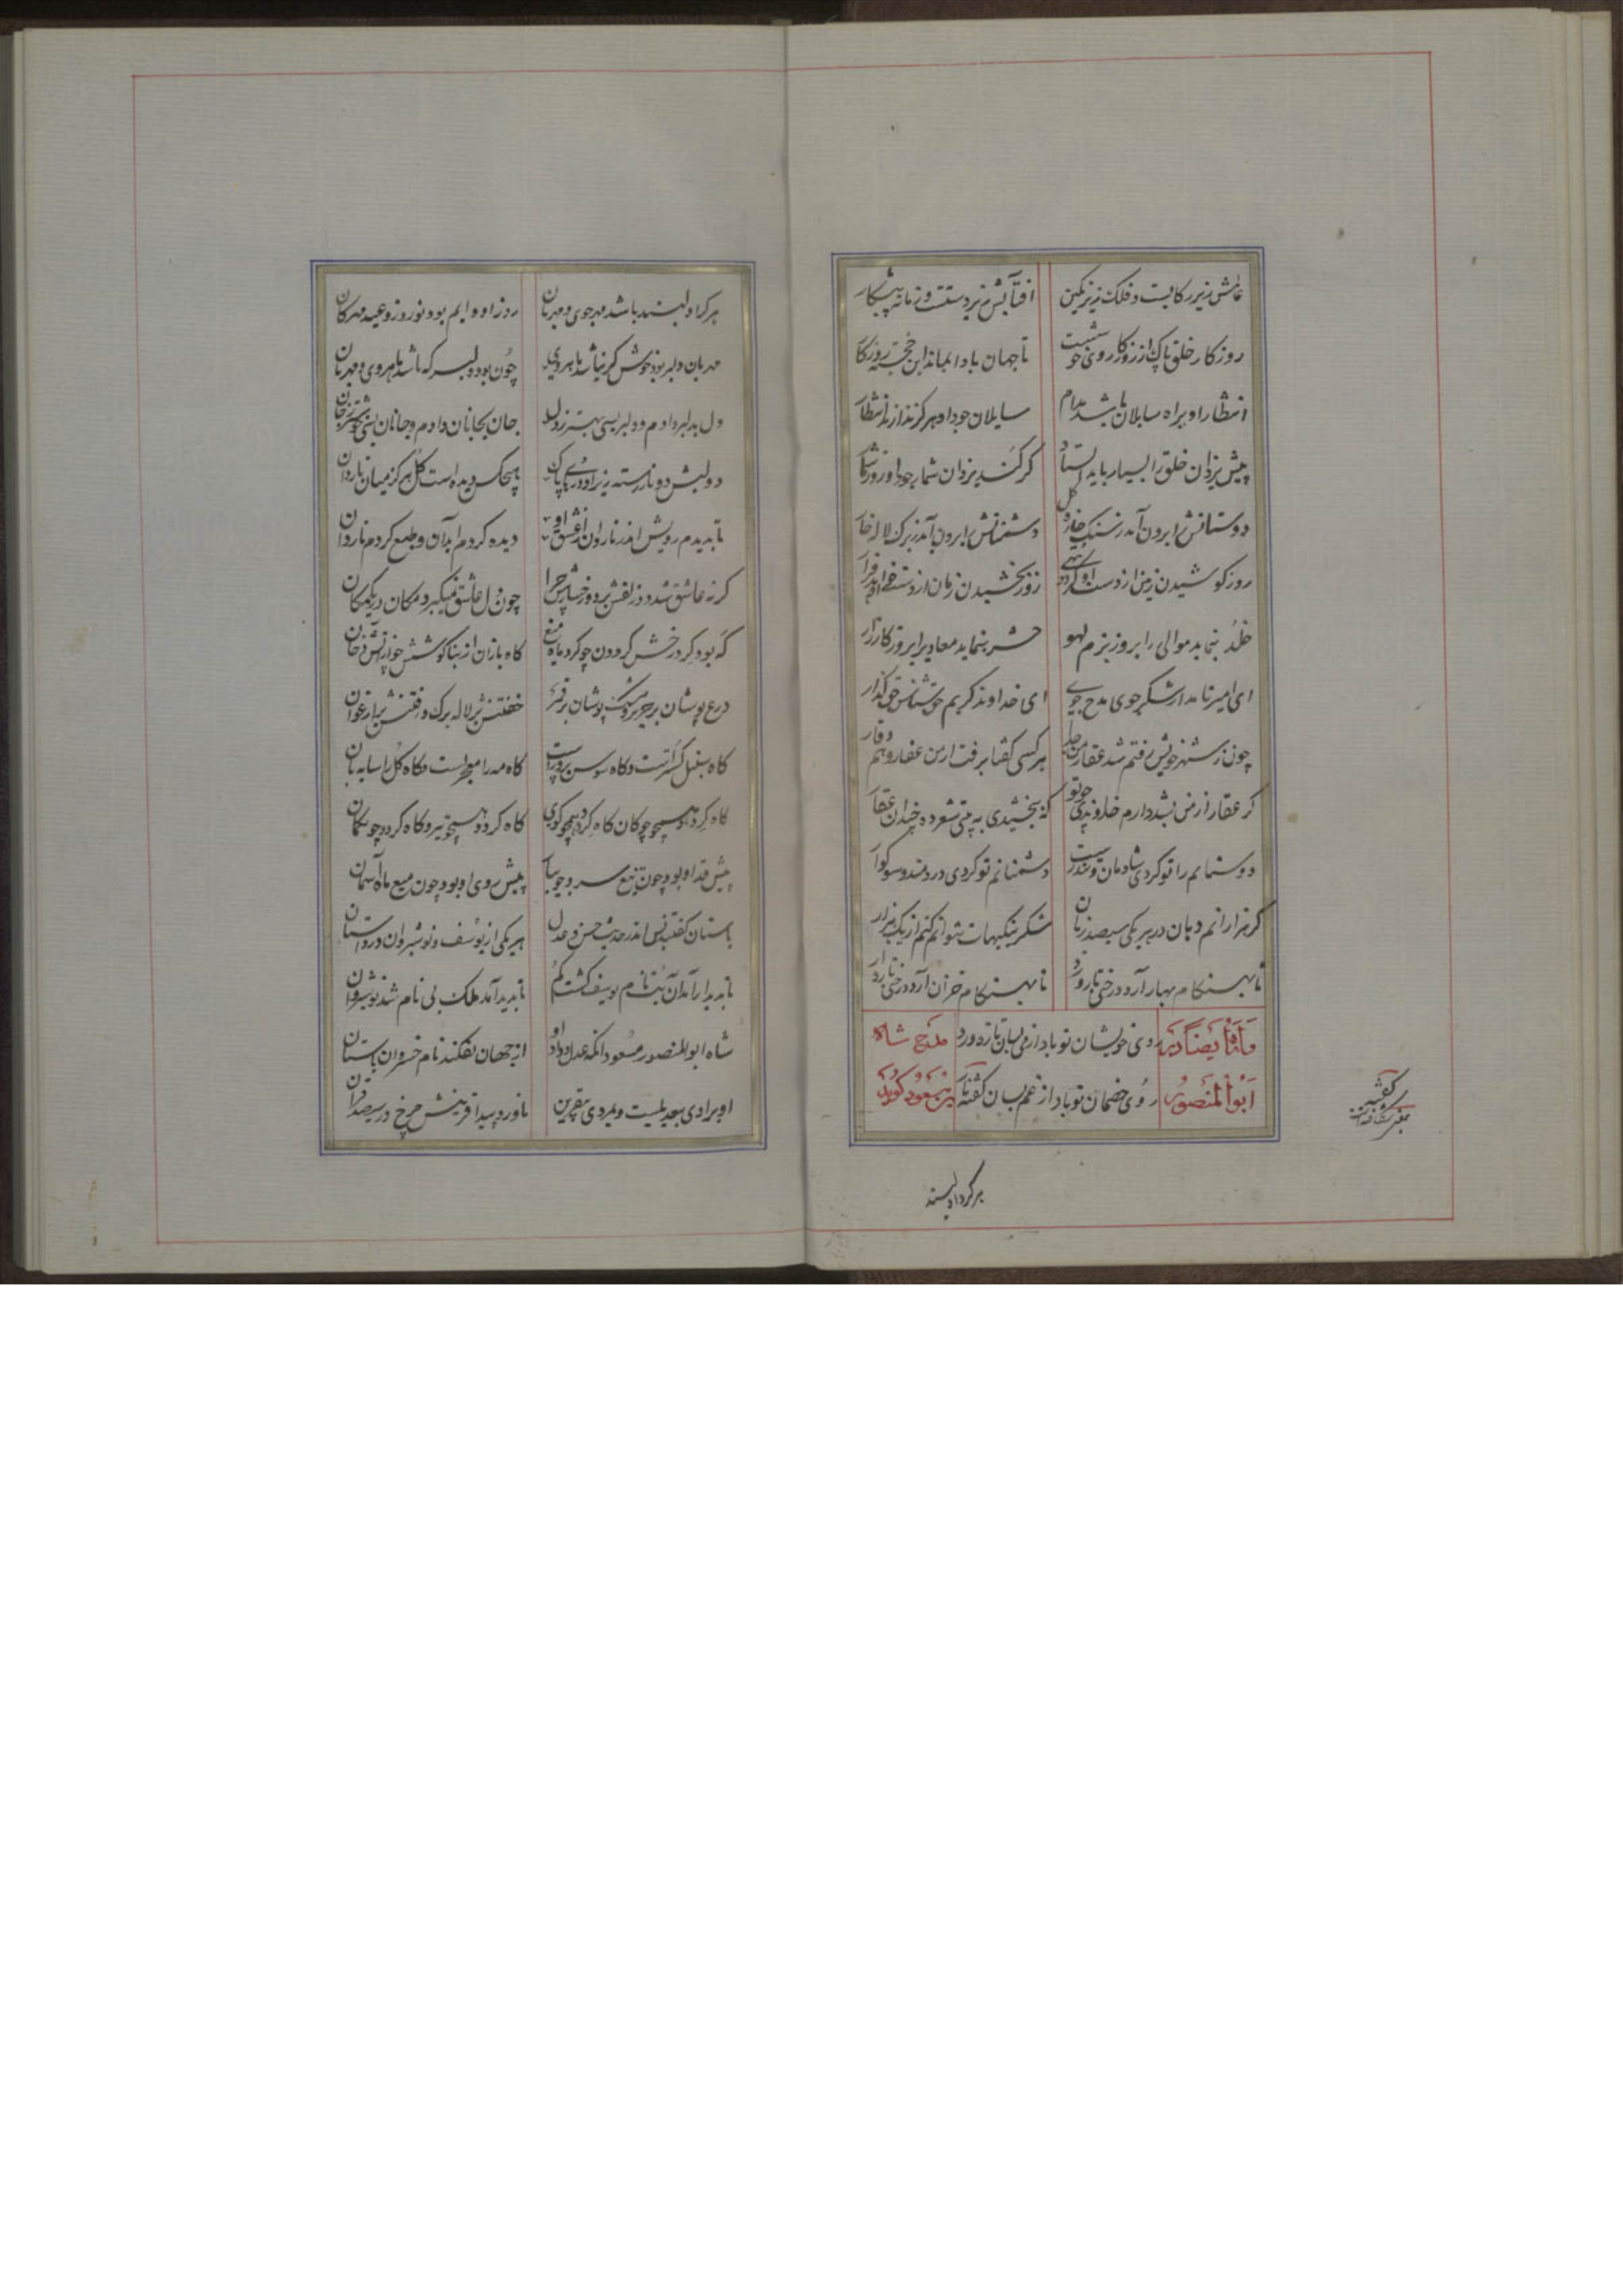 عالمش زیر رکابست و فلک زیر نکین آفتابش زیر دستست و زمانه پیشکار
روزکار خلق پاک از روزکار روی خوست تا جهان باد ایماند این خجسته روزکار
انتظار او براه سایلان باشد مدام سایلان جود او هرکز ندارند انتظار
پیش یزدان خلق را بسیار باید ایستاد کر کند یزدان شمار جود او روز شمار
دوستانش را برون آید ز سنک خاره کل دشمنانش را برون آید ز برک لاله خار
روز کوشیدن زمین از دست او کردد تهی روز بخشیدن زمان از دست او
خلد بنماید موالی را بروز بزم لهو حشر بنماید معادی را بروز کارزار
ای امیر نامدار شکر جوی مدح جوی ای خداوند کریم حق شناس حق کذار
چون ز شهر خویش رفتم شد عقار من جله هر کسی کفتا برفت از من عقار و هم وقار
کر عقار از من بشد دارم خداوندی چو تو که ببخشیدی به بیتی شعر ده چندان عقار
دوستانم را تو کردی شادمان و تندرست دشمنانم تو کردی دردمند و سوکوار
کر هزارانم دهان در هر یکی سیصد زبان شکر نیکیهات نتوانم کنم از یک هزار
تا بهنکام بهار آرد درختی تازه ورد تا بهنکام خزان آرد درختی نار
وله ایضا در روی خویشان تو باد از می بسان تازه ورد مدح شاه
ابوالمنصور روی خصمان تو باد از غم بسان کفته نار بن مسعود کوید
هر کرا دلبند باشد مهرجوی و مهربان روز او دایم بود نوروز و عید مهرکان
مهربان دلبر بود خوش کر نباشد ماهروی چون بود دلبر که باشد ماهروی و مهربان
دل بدلبر دادم و دلبر بسی بهتر ز دل جان بجانان دادم و جانان بسی خوشتر ز جان
دو لبش دو نار رسته زیر او در پاک هیچکس دیده است کل هرکز میان ناردان
تا بدیدم رویش اندر ناردان از عشق او دیده کردم آبدان و طبع کردم ناردان
کر نه عاشق شد دو زلفش بر دو رخسارش چرا چون دل عاشق نمیکیرد مکان در یک مکان
که بود کرد رخش کردون چو کرد ماه میغ کاه یازان از بناکوشش چو از آتش دخان
درع پوشان بر حریر و مشک پوشان بر قمر خفتنش بر لاله برک و رفتنش بر ارغوان
کاه سنبل کستر است و کاه سوسن پرورست کاه مه را معجر است و کاه کل را سایه بان
کاه کردد همچو چوکان کاه کردد همچو کوی کاه کردد همچو تیر و کاه کردد چون کمان
پیش قد او بود چون تیغ سرو جویبار پیش روی او بود چون میغ ماه آسمان
باستان کفتند بس اندر حدیث حسن و عدل هر یکی از یوسف و نوشیروان در داستان
تا بدیدار آمد آن بت نام یوسف کشت کم تا پدید آمد ملک بی نام شد نوشیروان
شاه ابوالمنصور مسعود آنکه عدل و داد او از جهان بفکند نام خسروان باستان
او براوی بعد بیست و بمردی بقرین ناورد پیدا قرینش چرخ در سیصد قران
هر کرا دلبند